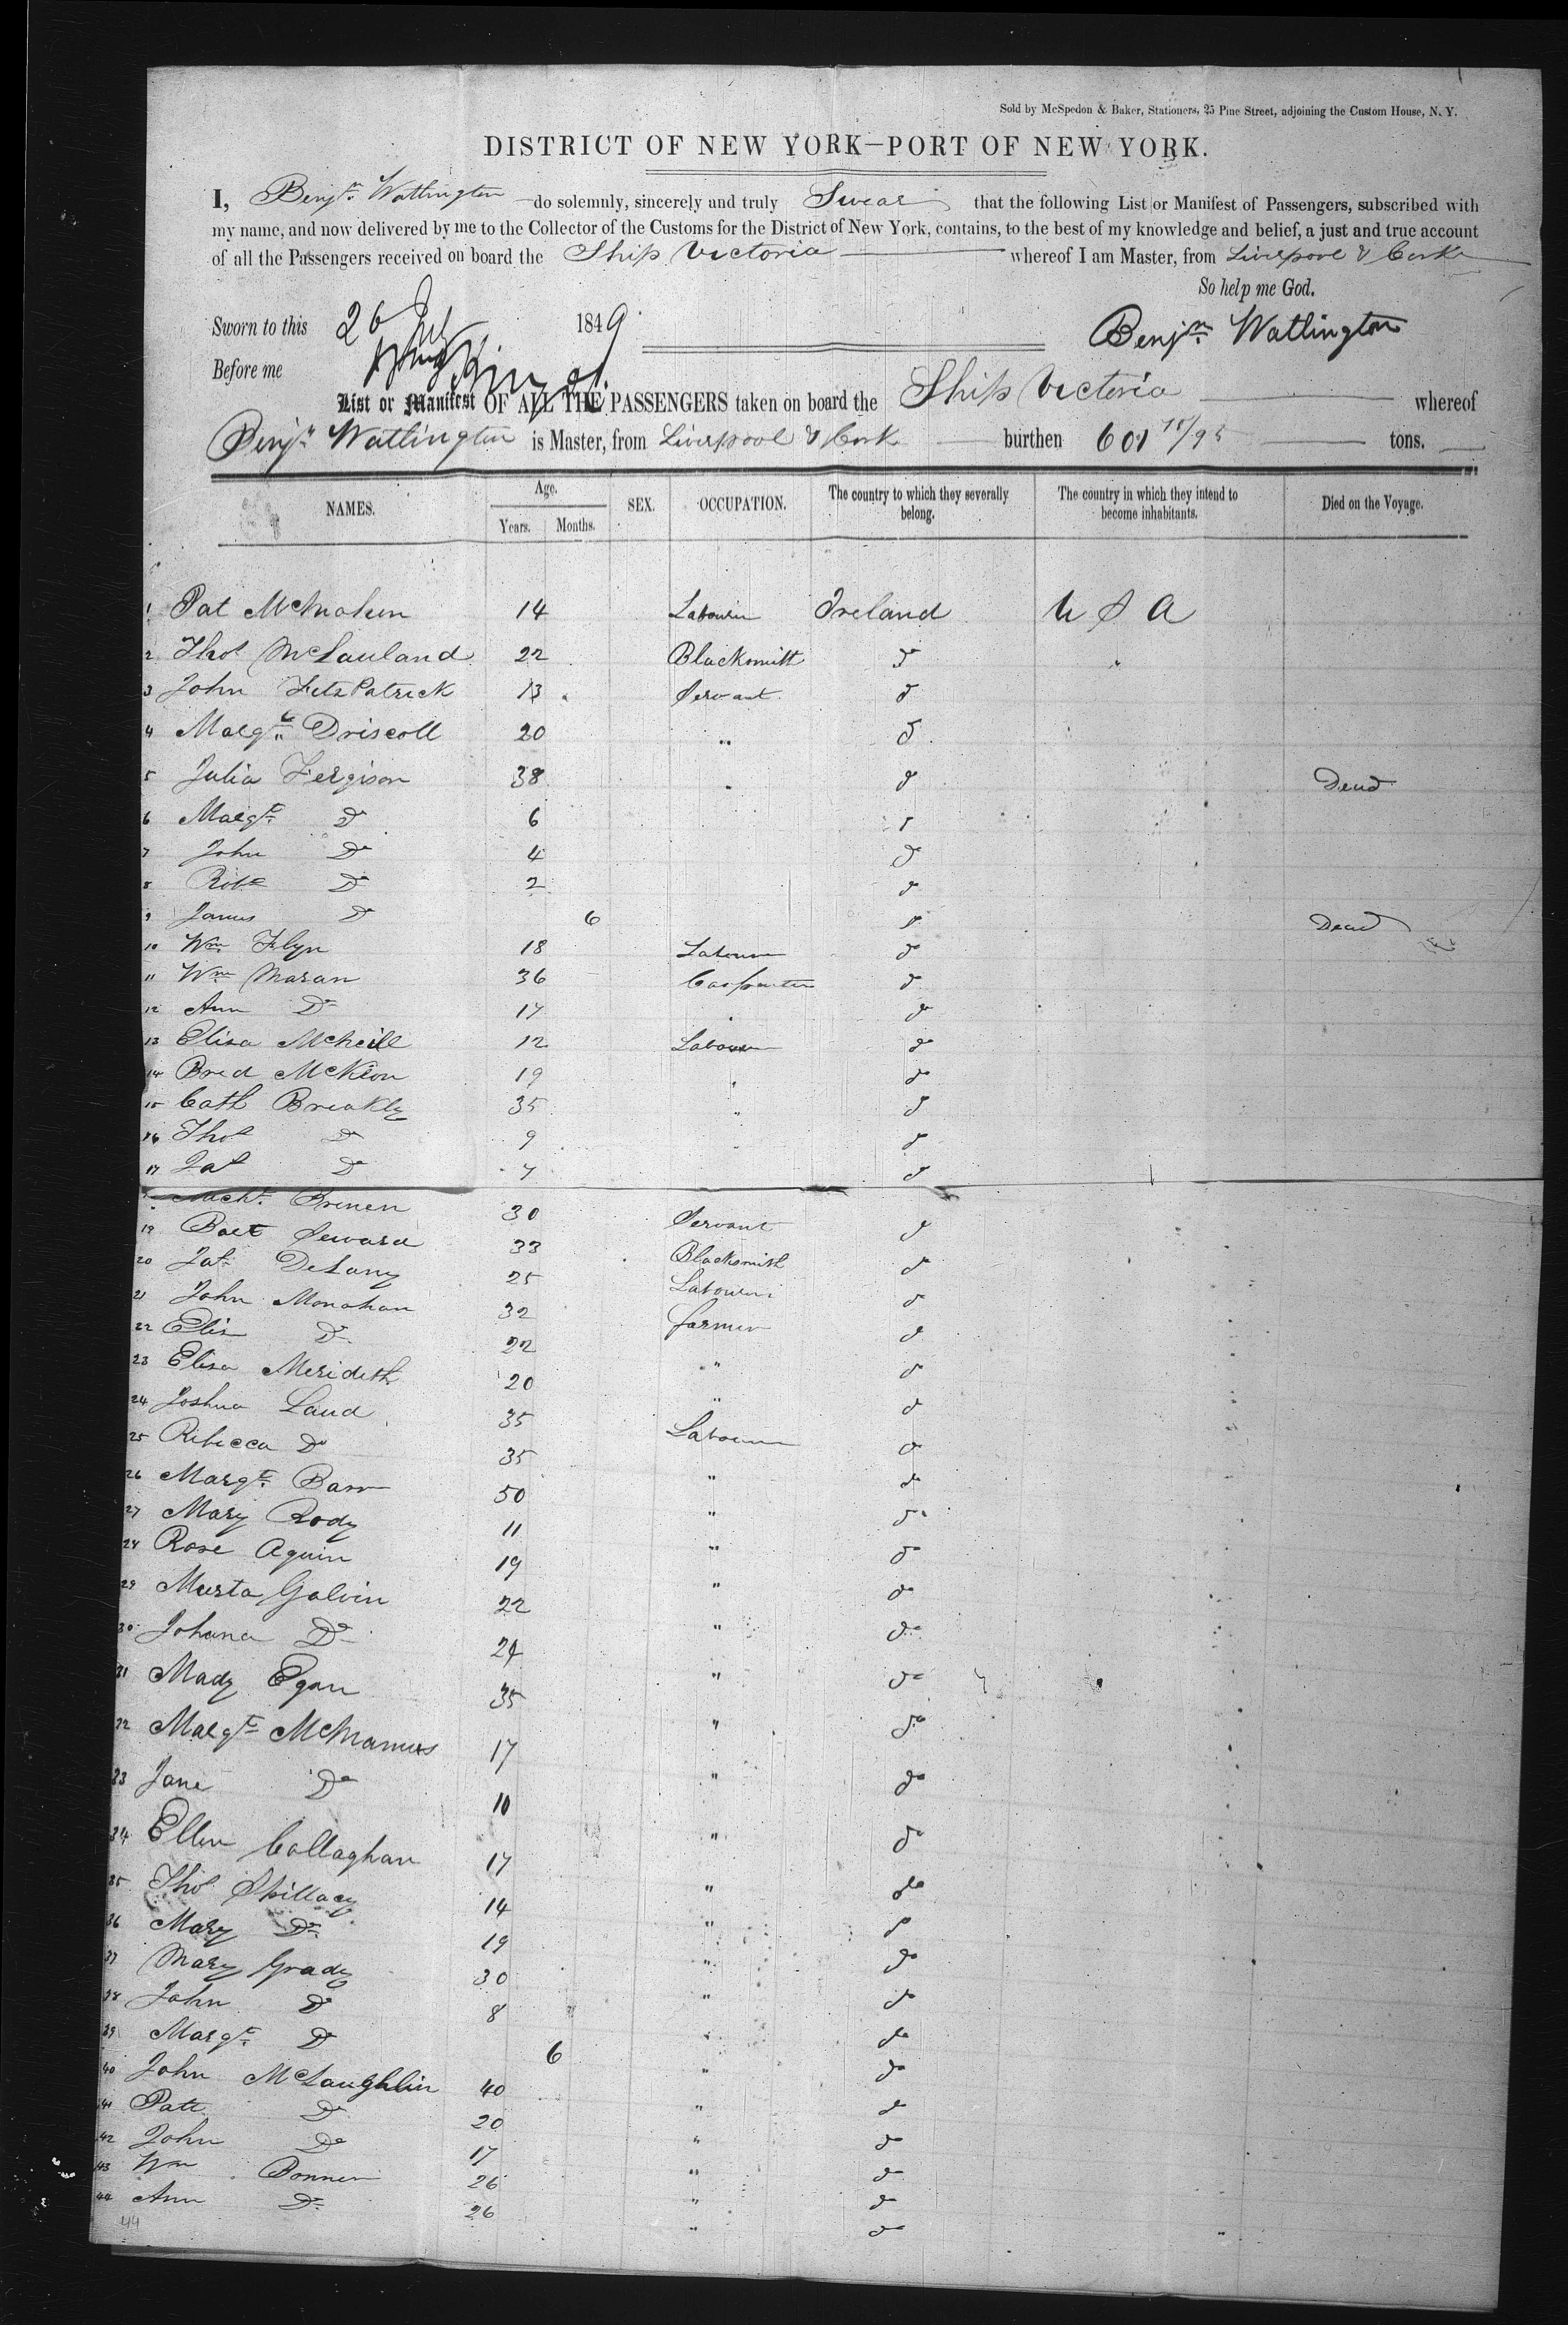 Sold by McSpedon & Baker, Stationers, 25 Pine Street, adjoining the Custom House, N. Y.
DISTRICT OF NEW YORK—PORT OF NEW YORK.
I, Benjn. Watlington do solemnly, sincerely and truly Swear that the following List or Manifest of Passengers, subscribed with
my name, and now delivered by me to the Collector of the Customs for the District of New York, contains, to the best of my knowledge and belief, a just and true account
of all the Passengers received on board the Ship Victoria whereof I am Master, from Liverpool & Cork
So help me God.
Sworn to this 26 July 1849. Benjn. Watlington
Before me
List or Manifest OF ALL THE PASSENGERS taken on board the Ship Victoria whereof
Benjn. Watlington is Master, from Liverpool & Cork burthen 601 /95 tons.
NAMES. Age. Years. Months. SEX. OCCUPATION. The country to which they severally belong. The country in which they intend to become inhabitants. Died on the Voyage.
1 Pat McMahon 14 Labourer Ireland U S A
2 Thos McLauland 22 Blacksmith do "
3 John FitzPatrick 13 Servant do
4 Margt. Driscoll 20 " do
5 Julia Fergison 38 " do Dead
6 Margt. Do 6 do
7 John Do 4 do
8 Robt Do 2 do
9 James Do 6 do Dead
10 Wm. Flyn 18 Labourer do
11 Wm Moran 36 Carpenter do
12 Ann Do 17 " do
13 Elisa McNeill 12 Labourer do
14 Brid McKeon 19 " do
15 Cath Breakly 35 " do
16 Thos Do 9 " do
17 Pat Do 7 do
Michl. Brenen 30 Servant do
19 Bart Seward 33 Blacksmith do
20 Pat. DeLany 25 Labourer do
21 John Monahan 32 farmer do
22 Elis Do 22 " do
23 Elisa Merideth 20 " do
24 Joshua Laud 35 Labourer do
25 Rebecca Do 35 " do
26 Margt. Barr 50 " do
27 Mary Rody 11 " do
28 Rose Aguin 19 " do
29 Murta Galvin 22 " do
30 Johana Do 24 " do
31 Mady Egan 35 " do
32 Margt McManus 17 " do
33 Jane Do 10 " do
34 Ellen Callaghan 17 " do
35 Thos Spillacy 14 " do
36 Mary Do 19 " do
37 Mary Grady 30 " do
38 John Do 8 " do
39 Margt. Do 6 " do
40 John McLaughlin 40 " do
41 Patt Do 20 " do
42 John Do 17 " do
43 Wm Bonner 26 " do
44 Ann Do 26 " do
44